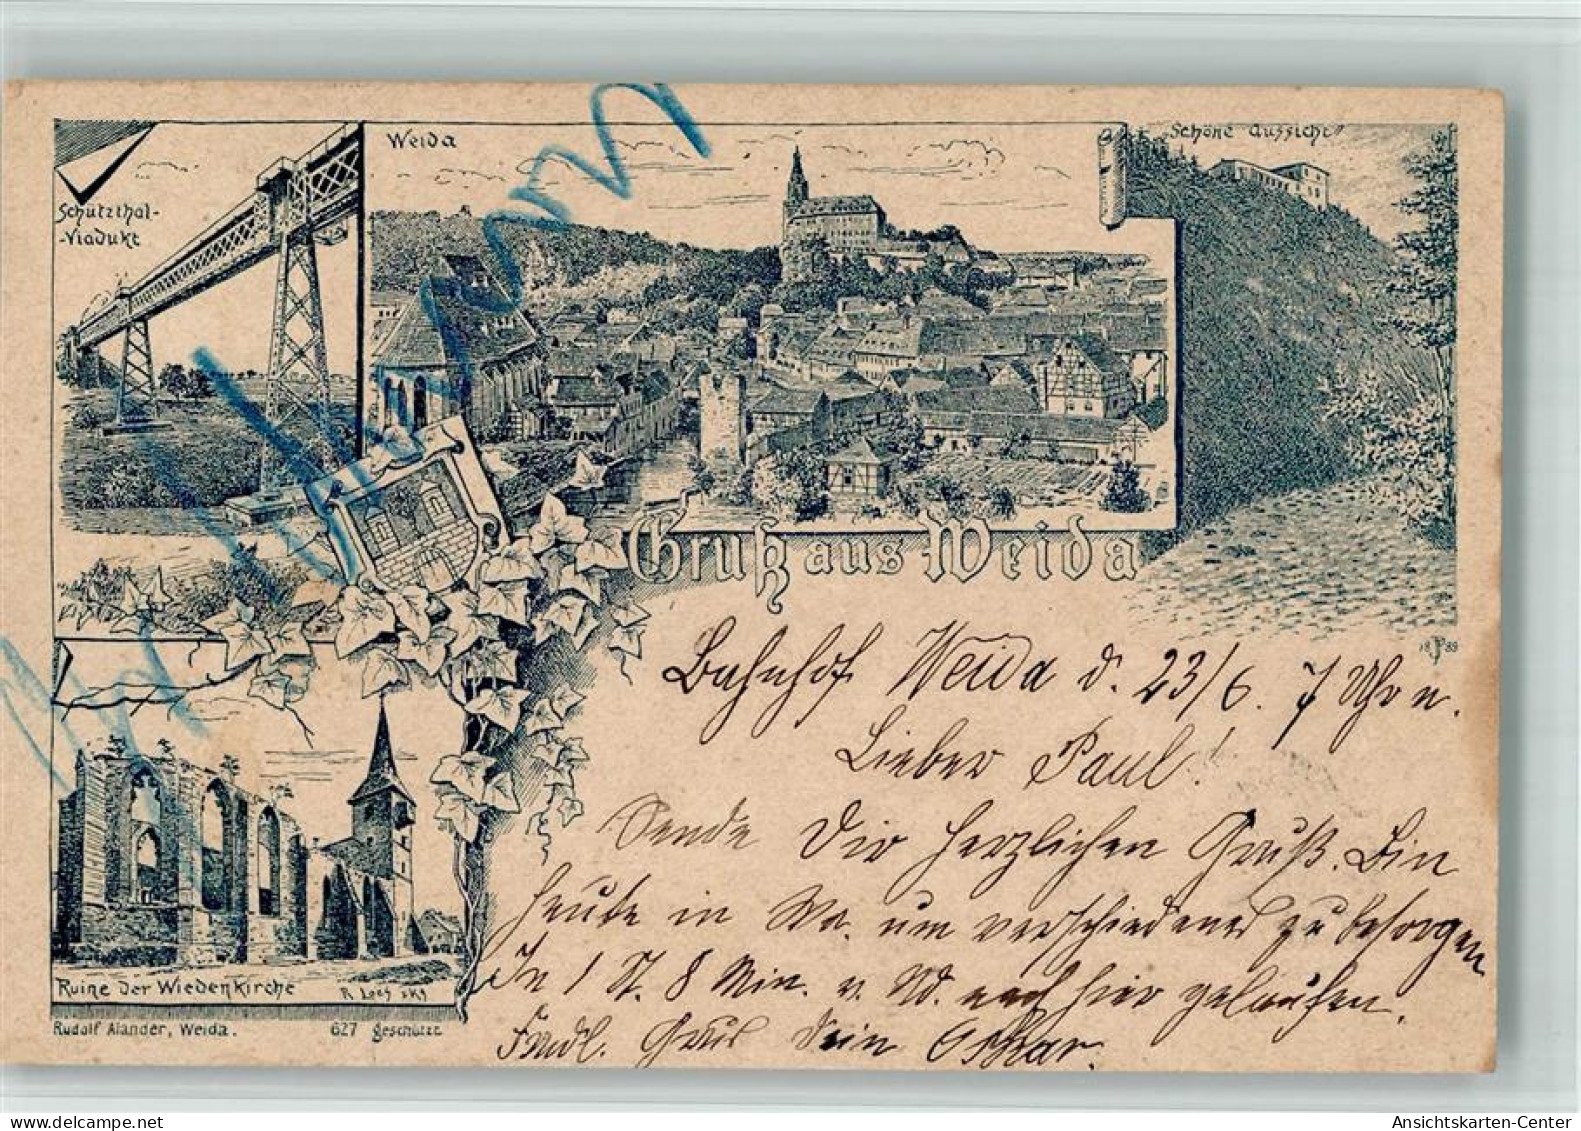 Schützthal-
-Viadukt
Weida
Schöne Aussicht
Gruß aus Weida
1889
Bahnhof Weida d. 23/6. 7 Uhr n.
Lieber Paul!
Sende Dir herzlichen Gruß. Bin
heute in Wa. um verschiedenes zu besorgen
In 1 St. 8 Min. v. Nd. nach hier gelaufen.
Frdl. Grus Dein Oskar.
Ruine der Wiedenkirche
Rudolf Alander, Weida. 627 geschützt
Ansichtskarten-Center
www.delcampe.net